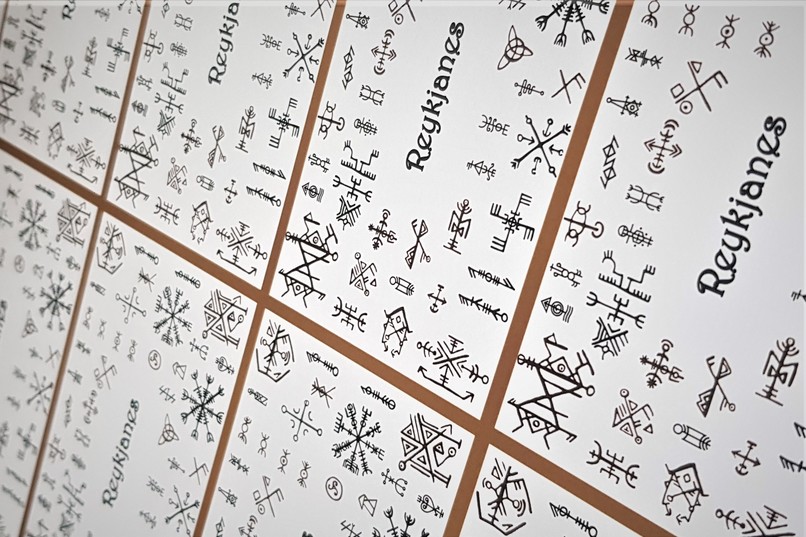 Reykja
Reykjanes
Reykjanes
Reykjanes